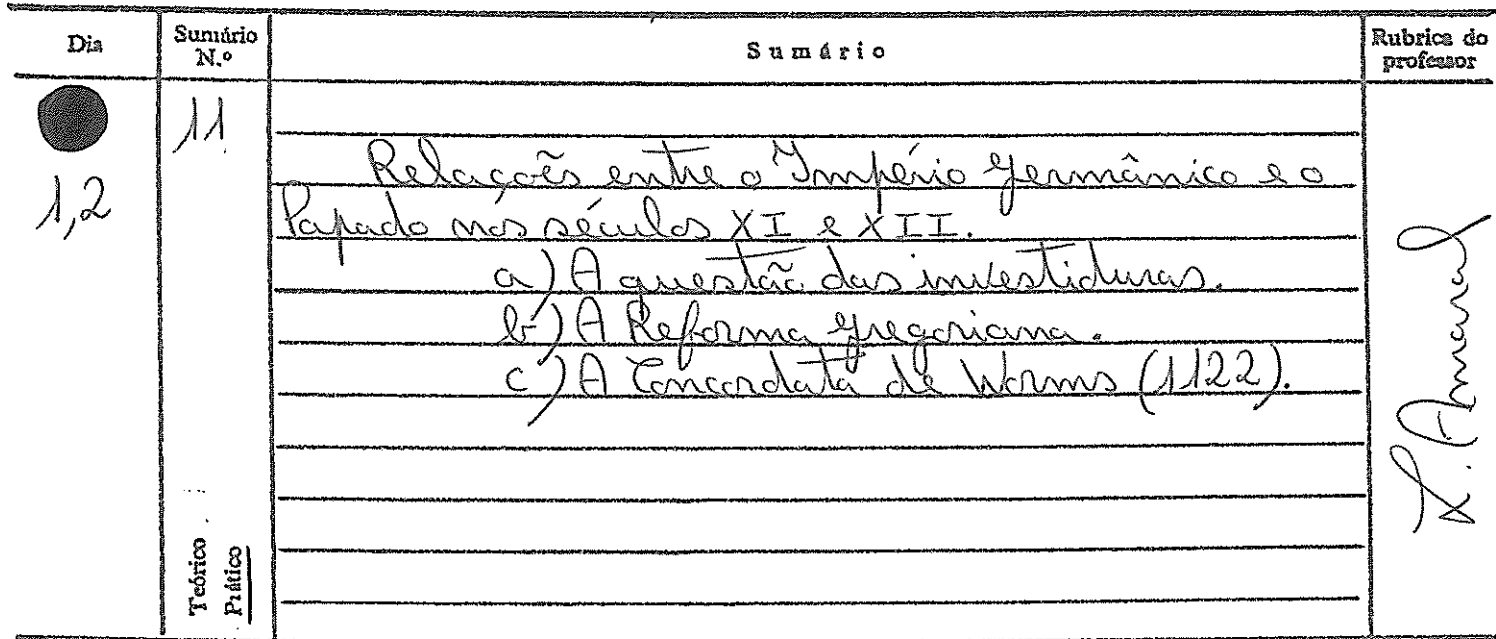 Dia
Sumário N.º
Sumário
Rubrica do professor
11
1,2
Relações entre o Império Germânico e o
Papado nos séculos XI e XII.
a) A questão das investiduras.
b) A Reforma gregoriana.
c) A Concordata de Worms (1122).
Teórico
Prático
L. Amaral